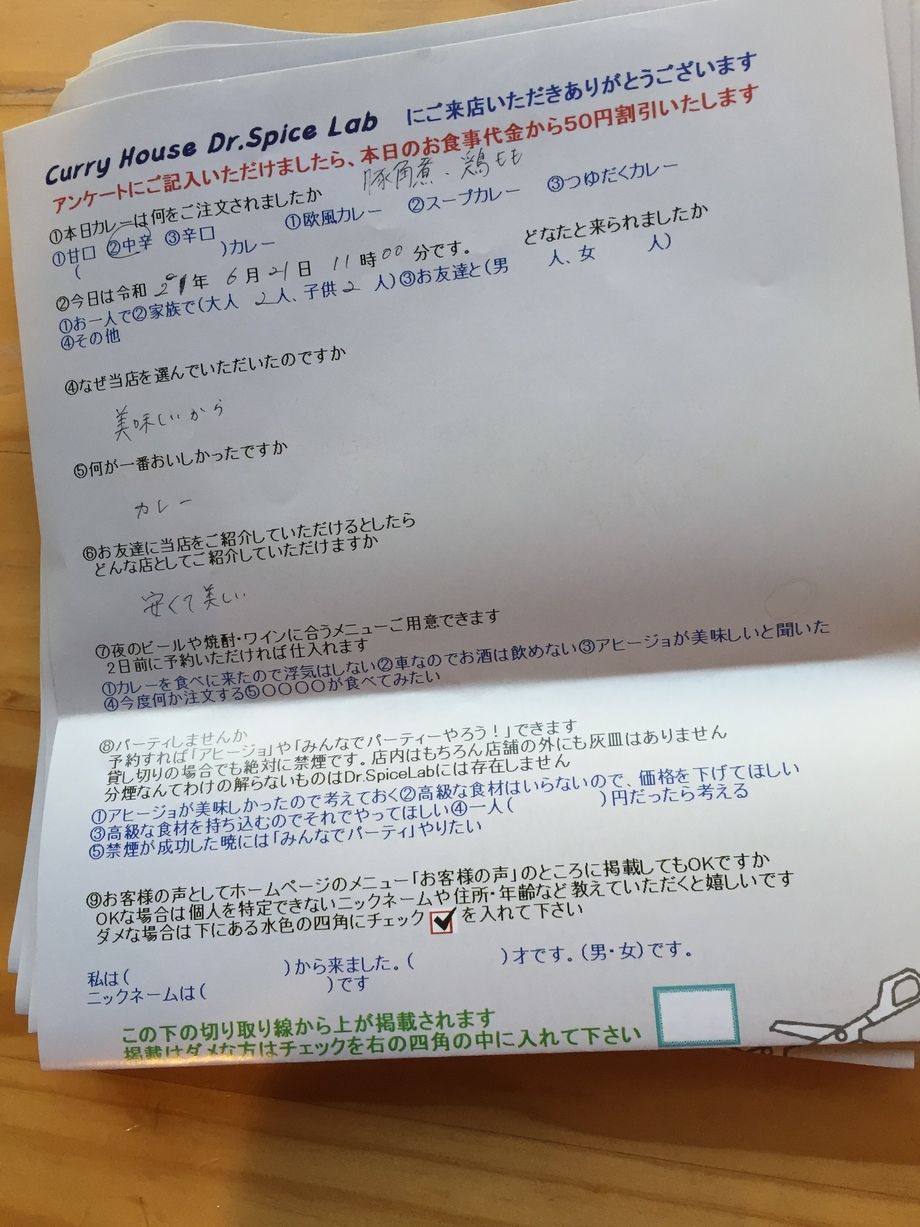 Curry House Dr.Spice Lab にご来店いただきありがとうございます
アンケートにご記入いただけましたら、本日のお食事代金から50円割引いたします
豚角煮、鶏もも
①本日カレーは何をご注文されましたか ①欧風カレー ②スープカレー ③つゆだくカレー
①甘口 ②中辛 ③辛口
( )カレー
②今日は令和 年 6月21日 11時00分です。 どなたと来られましたか
①お一人で②家族で(大人 2人、子供2 人)③お友達と(男 人、女 人)
④その他
④なぜ当店を選んでいただいたのですか
美味しいから
⑤何が一番おいしかったですか
カレー
⑥お友達に当店をご紹介していただけるとしたら
どんな店としてご紹介していただけますか
安くて美しい
⑦夜のビールや焼酎・ワインに合うメニューご用意できます
2日前に予約いただければ仕入れます
①カレーを食べに来たので浮気はしない②車なのでお酒は飲めない③アヒージョが美味しいと聞いた
④今度何か注文する⑤〇〇〇〇が食べてみたい
⑧パーティしませんか
予約すれば「アヒージョ」や「みんなでパーティーやろう!」できます
貸し切りの場合でも絶対に禁煙です。店内はもちろん店舗の外にも灰皿はありません
分煙なんてわけの解らないものはDr.SpiceLabには存在しません
①アヒージョが美味しかったので考えておく②高級な食材はいらないので、価格を下げてほしい
③高級な食材を持ち込むのでそれでやってほしい④一人( )円だったら考える
⑤禁煙が成功した暁には「みんなでパーティ」やりたい
⑨お客様の声としてホームページのメニュー「お客様の声」のところに掲載してもOKですか
OKな場合は個人を特定できないニックネームや住所・年齢など教えていただくと嬉しいです
ダメな場合は下にある水色の四角にチェック を入れて下さい
私は( )から来ました。( )才です。(男・女)です。
ニックネームは( )です
この下の切り取り線から上が掲載されます
掲載はダメな方はチェックを右の四角の中に入れて下さい